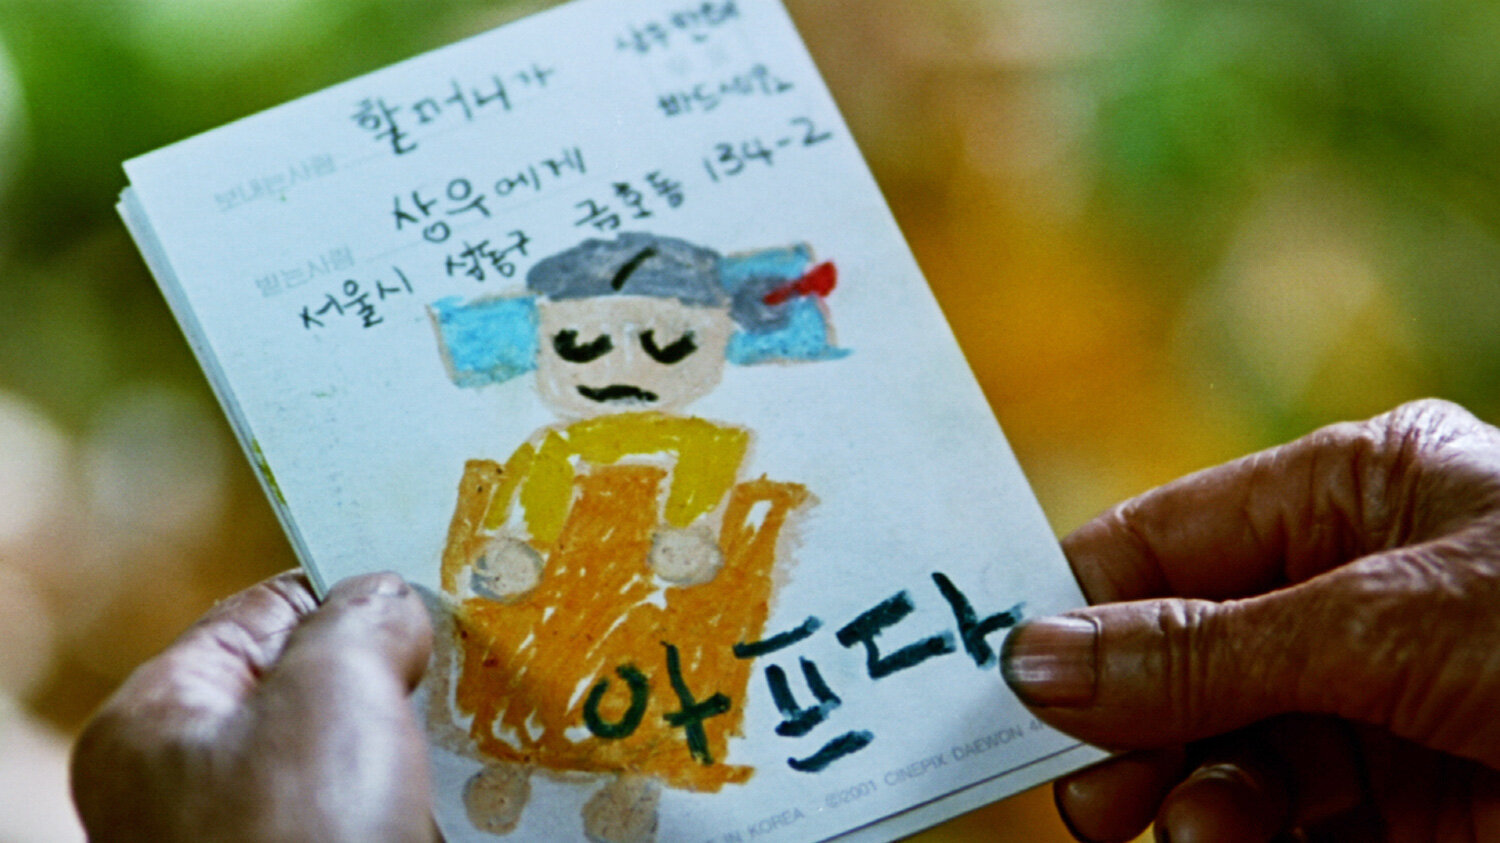 상우
바드세요
할머니가
보내는사람
상우에게
받는사람
서울시 성동구 금호동 134-2
아프다
IN KOREA ©2001 CINEPIX DAEWON